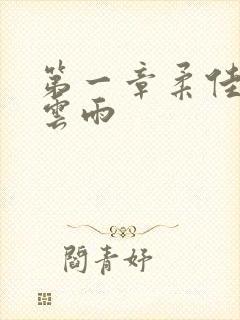 第一章柔佳
雲雨
閻青妤